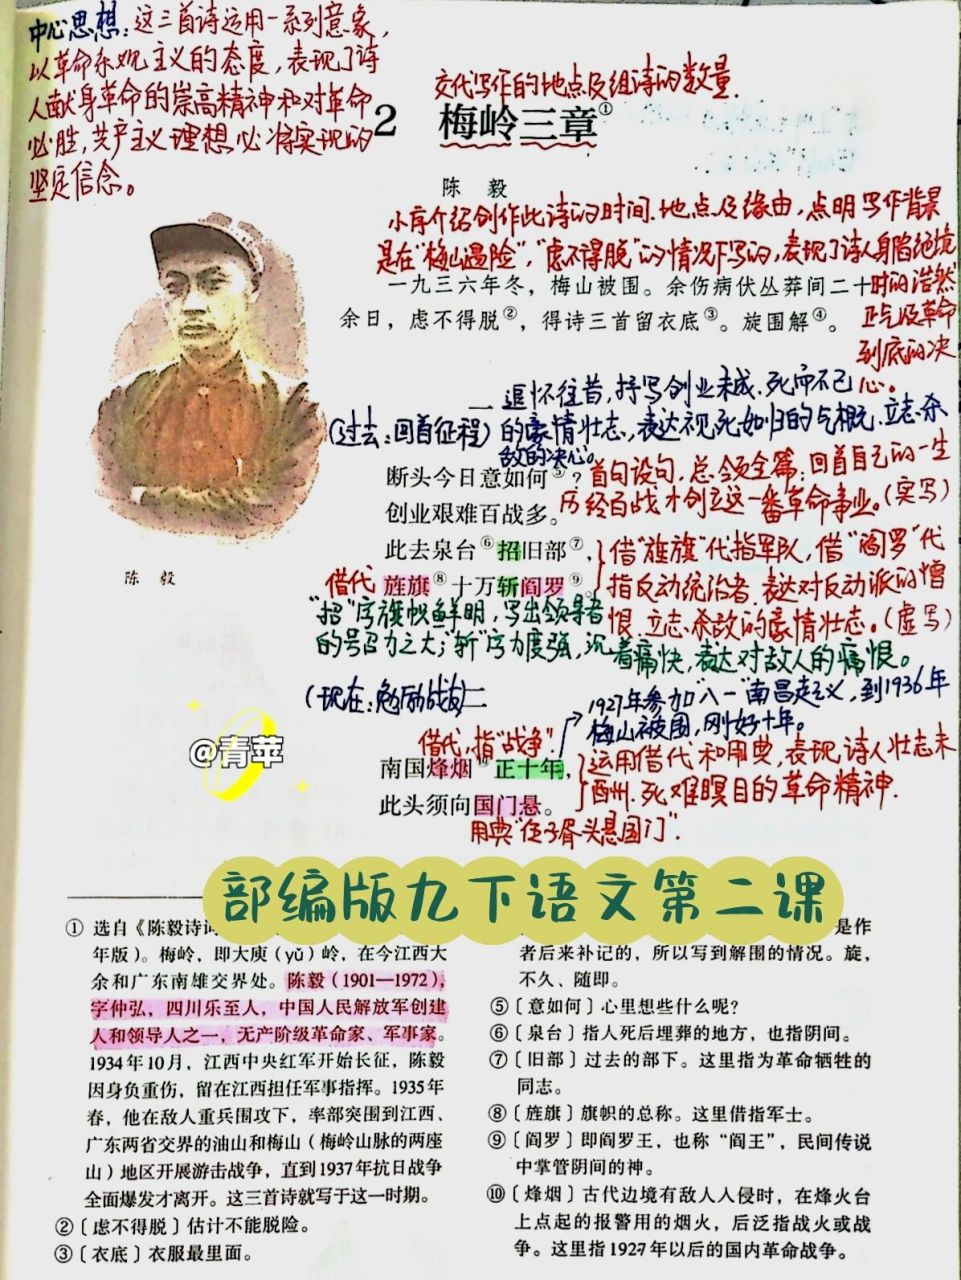 中心思想:这三首诗运用一系列意象,
以革命乐观主义的态度,表现了诗
人献身革命的崇高精神和对革命
必胜,共产主义理想必将实现的
坚定信念。
交代写作的地点及组诗的数量.
2 梅岭三章①
陈 毅
小序介绍创作此诗的时间、地点及缘由,点明写作背景
是在“梅山遇险”,“虑不得脱”的情况下写的,表现了诗人身陷绝境
时的浩然
正气及革命
到底的决
心。
一九三六年冬,梅山被围。余伤病伏丛莽间二十
余日,虑不得脱②,得诗三首留衣底③。旋围解④。
一
追怀往昔,抒写创业未成、死而不已
(过去:回首征程)的豪情壮志,表达视死如归的气概、立志杀
敌的决心。
断头今日意如何⑤?
创业艰难百战多。
首句设句,总领全篇:回首自己的一生
历经百战才创立这一番革命事业。(实写)
此去泉台⑥招旧部⑦,
借代
旌旗⑧十万斩阎罗⑨。
借“旌旗”代指军队,借“阎罗”代
指反动统治者,表达对反动派的憎
恨、立志杀敌的豪情壮志。(虚写)
“招”字旗帜鲜明,写出领导者
的号召力之大;“斩”字力度强,沉着痛快,表达对敌人的痛恨。
(现在:勉励战友)二
1927年参加“八一”南昌起义,到1936年
梅山被围,刚好十年。
借代,指“战争”.
南国烽烟⑩正十年,
此头须向国门悬。
运用借代和用典,表现诗人壮志未
酬、死难瞑目的革命精神.
用典“伍子胥头悬国门”.
陈 毅
@青苹
部编版九下语文第二课
① 选自《陈毅诗词
年版)。梅岭,即大庾(yǔ)岭,在今江西大
余和广东南雄交界处。陈毅(1901—1972),
字仲弘,四川乐至人,中国人民解放军创建
人和领导人之一,无产阶级革命家、军事家。
1934年10月,江西中央红军开始长征,陈毅
因身负重伤,留在江西担任军事指挥。1935年
春,他在敌人重兵围攻下,率部突围到江西、
广东两省交界的油山和梅山(梅岭山脉的两座
山)地区开展游击战争,直到1937年抗日战争
全面爆发才离开。这三首诗就写于这一时期。
②〔虑不得脱〕估计不能脱险。
③〔衣底〕衣服最里面。
是作
者后来补记的,所以写到解围的情况。旋,
不久、随即。
⑤〔意如何〕心里想些什么呢?
⑥〔泉台〕指人死后埋葬的地方,也指阴间。
⑦〔旧部〕过去的部下。这里指为革命牺牲的
同志。
⑧〔旌旗〕旗帜的总称。这里借指军士。
⑨〔阎罗〕即阎罗王,也称“阎王”,民间传说
中掌管阴间的神。
⑩〔烽烟〕古代边境有敌人入侵时,在烽火台
上点起的报警用的烟火,后泛指战火或战
争。这里指1927年以后的国内革命战争。